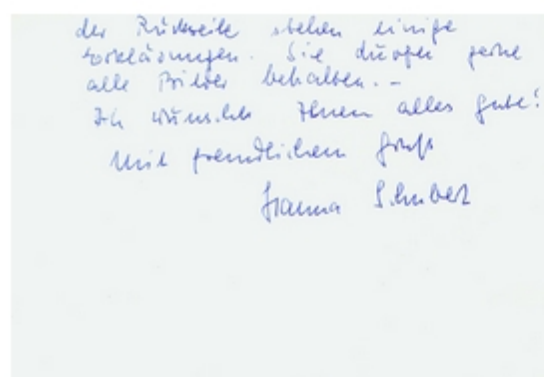 der Rückseite stehen einige
Erklärungen. Sie dürfen gerne
alle Bilder behalten. –
Ich wünsche Ihnen alles Gute!
Mit freundlichem Gruß
Hanna Schubert